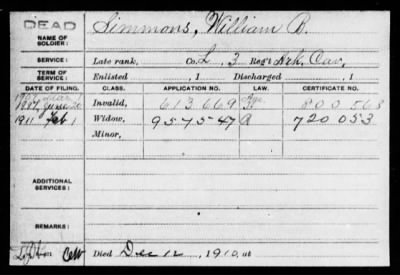 DEAD
NAME OF SOLDIER: Simmons, William B.
SERVICE: Late rank, Co. L, 3 Reg't Ark. Cav.
TERM OF SERVICE: Enlisted , 1 Discharged , 1
DATE OF FILING. CLASS. APPLICATION NO. LAW. CERTIFICATE NO.
1907 June 20 Invalid, 613669 800568
1911 Feb 1 Widow, 957547 720053
Minor,
ADDITIONAL SERVICES:
REMARKS:
Died Dec 12, 1910, at